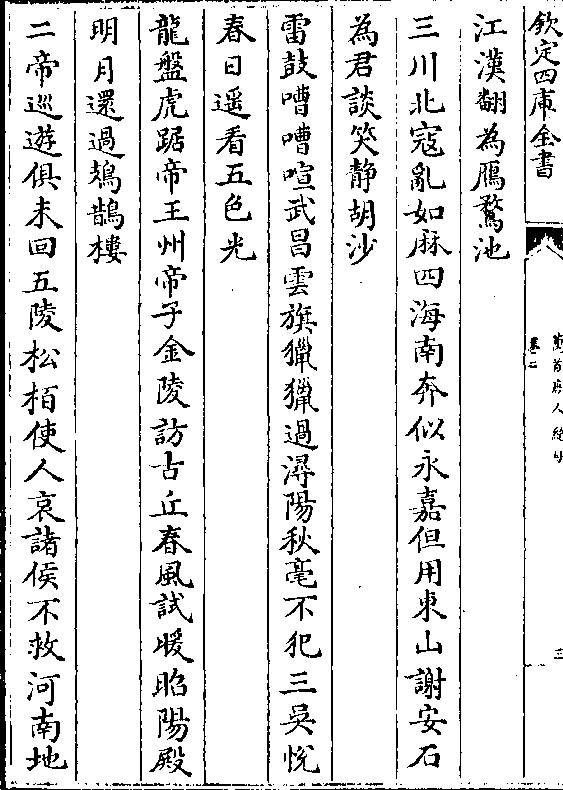 欽定四庫全書
萬首唐人絶句
卷二
三
江漢翻為鴈鶩池
三川北寇亂如麻四海南奔似永嘉但用東山謝安石
為君談笑静胡沙
雷鼓嘈嘈喧武昌雲旗獵獵過潯陽秋毫不犯三吳悅
春日遥看五色光
龍盤虎踞帝王州帝子金陵訪古丘春風試暖昭陽殿
明月還過鳷鵲樓
二帝巡遊俱未回五陵松栢使人哀諸侯不救河南地